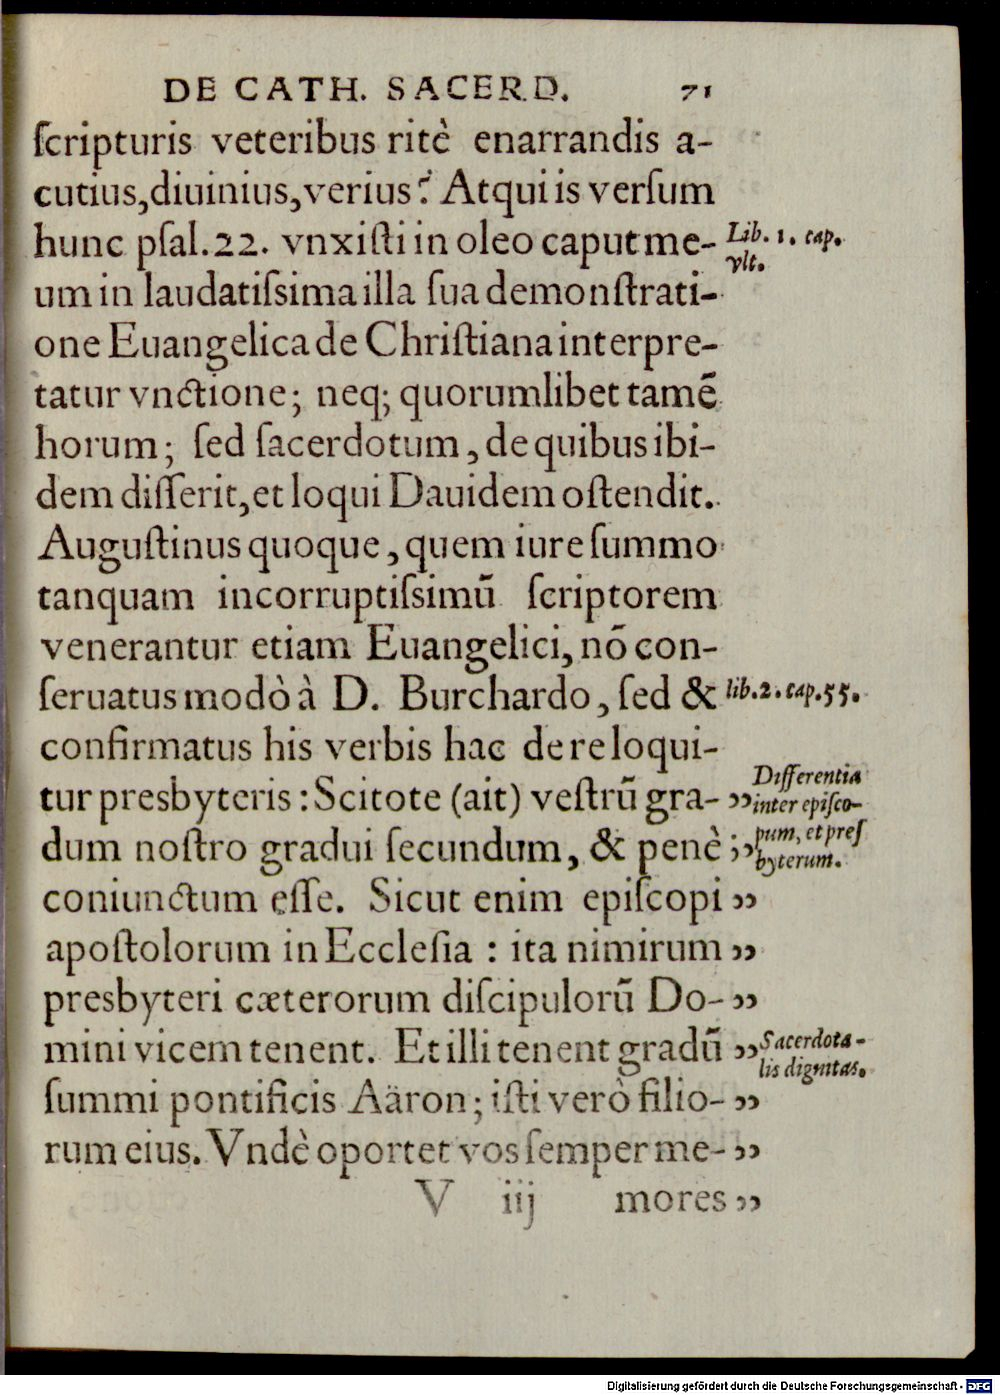 DE CATH. SACERD. 71
ſcripturis veteribus ritè enarrandis a-
cutius,diuinius,verius? Atqui is verſum
hunc pſal.22. vnxiſti in oleo caput me-
Lib. 1. cap.
vlt.
um in laudatiſsima illa ſua demonſtrati-
one Euangelica de Chriſtiana interpre-
tatur vnctione; neq; quorumlibet tamē
horum; ſed ſacerdotum, de quibus ibi-
dem diſſerit,et loqui Dauidem oſtendit.
Auguſtinus quoque, quem iure ſummo
tanquam incorruptiſsimū ſcriptorem
venerantur etiam Euangelici, nō con-
ſeruatus modò à D. Burchardo, ſed &
lib.2.cap.55.
confirmatus his verbis hac de re loqui-
tur presbyteris: Scitote (ait) veſtrū gra- „
dum noſtro gradui ſecundum, & penè „
Differentia
inter epiſco-
pum, et preſ
byterum.
coniunctum eſſe. Sicut enim epiſcopi „
apoſtolorum in Eccleſia : ita nimirum „
presbyteri cæterorum diſcipulorū Do- „
mini vicem tenent. Et illi tenent gradū „
Sacerdota-
lis dignitas.
ſummi pontificis Aäron; iſti verò filio- „
rum eius. Vndè oportet vos ſemper me- „
V iij mores „
Digitalisierung gefördert durch die Deutsche Forschungsgemeinschaft - DFG